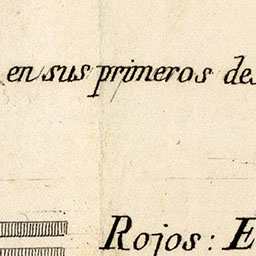 en sus primeros des
Rojos: E